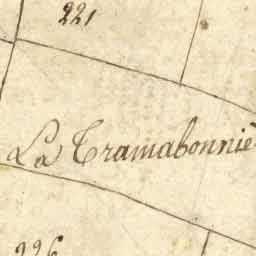 221
La Tramabonniè
226